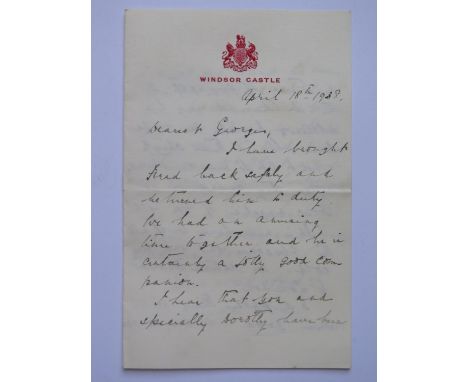 WINDSOR CASTLE
April 18th 1938.
Dearest Georgie,
I have brought
Fred back safely and
returned him to duty.
We had an amusing
time together and he is
certainly a jolly good com
panion.
I hear that you and
specially Dorothy have been